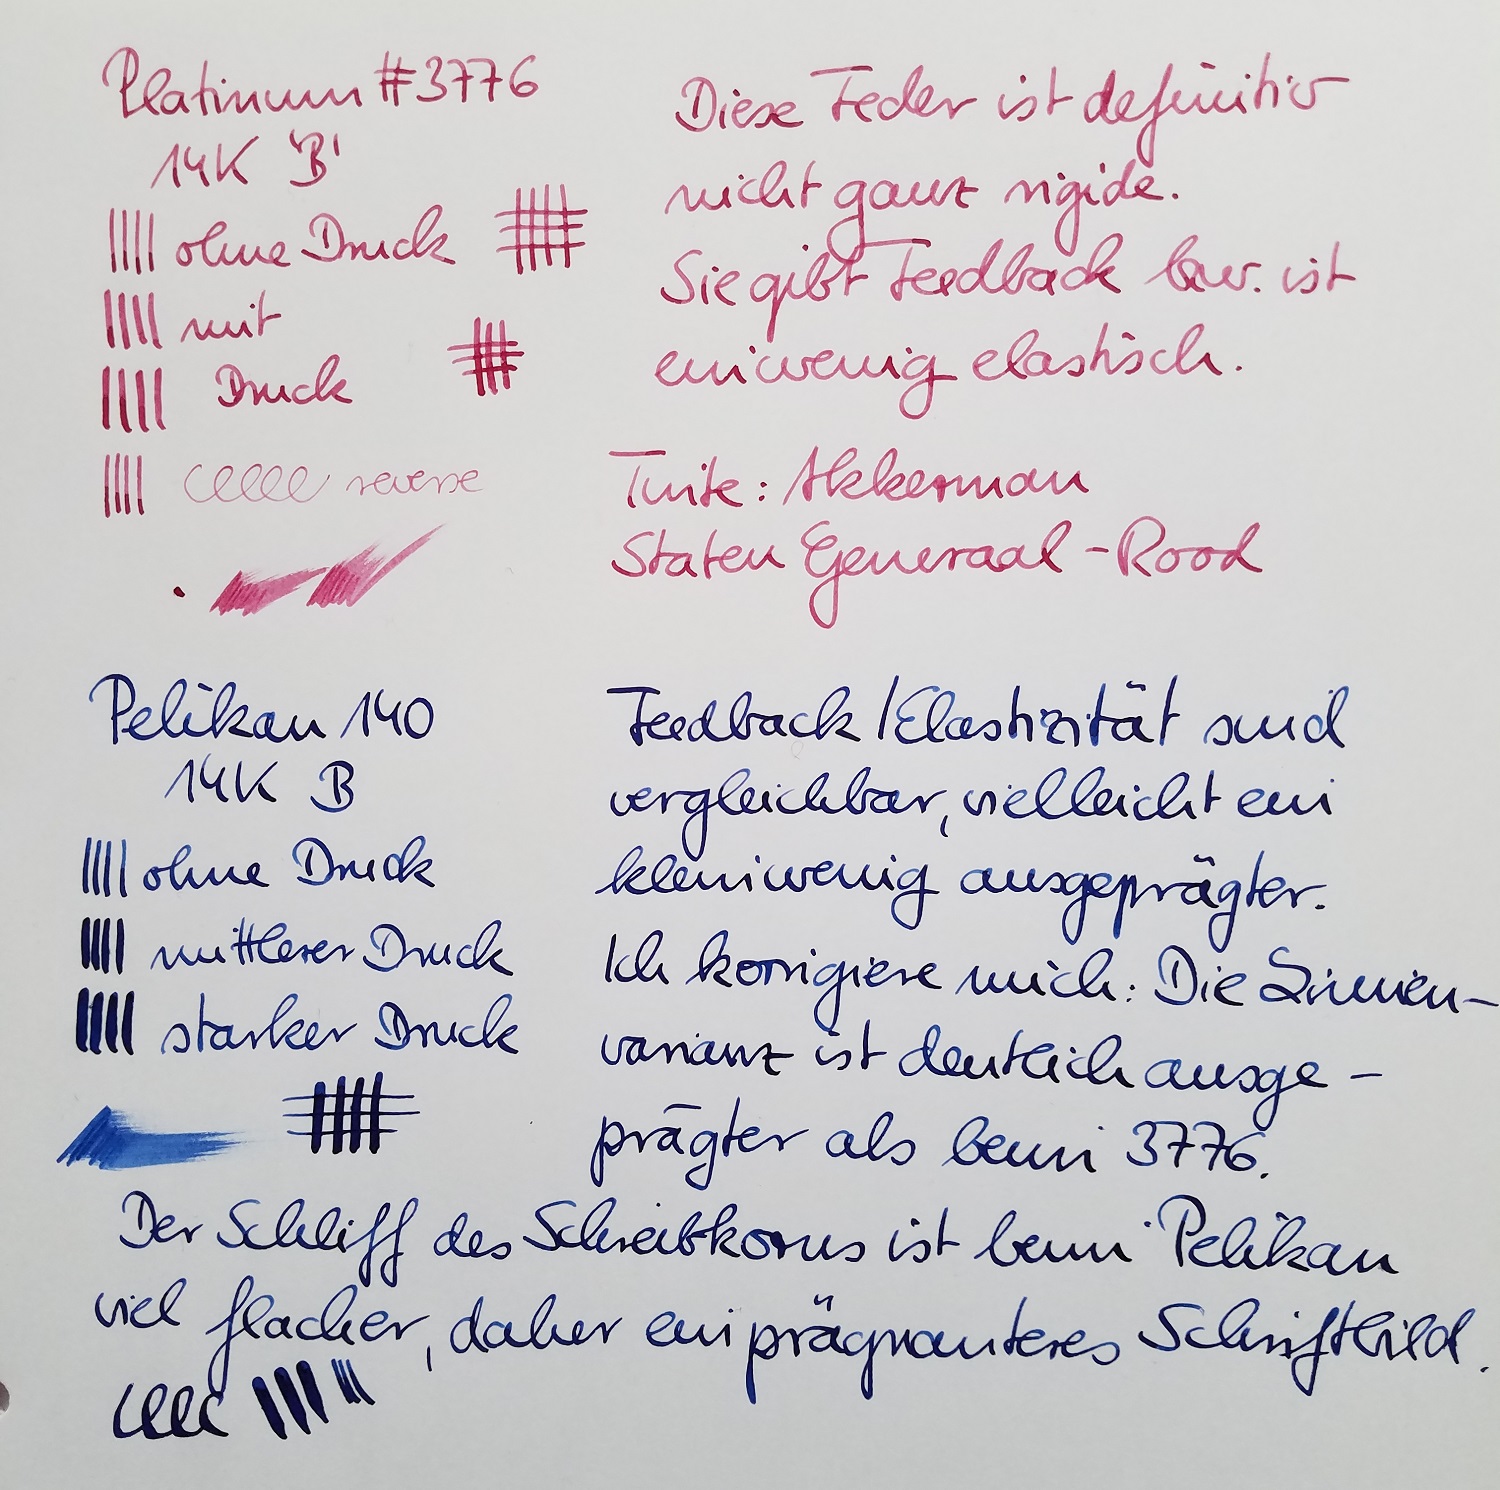 Platinum #3776
14K 'B'
ohne Druck
mit
Druck
reverse
Diese Feder ist definitiv
nicht ganz rigide.
Sie gibt Feedback bzw. ist
ein wenig elastisch.
Tinte: Akkerman
Staten Generaal - Rood
Pelikan 140
14K B
ohne Druck
mittlerer Druck
starker Druck
Feedback / Elastizität sind
vergleichbar, vielleicht ein
klein wenig ausgeprägter.
Ich korrigiere mich: Die Linien-
varianz ist deutlich ausge-
prägter als beim 3776.
Der Schliff des Schreibkorns ist beim Pelikan
viel flacher, daher ein prägnanteres Schriftbild.